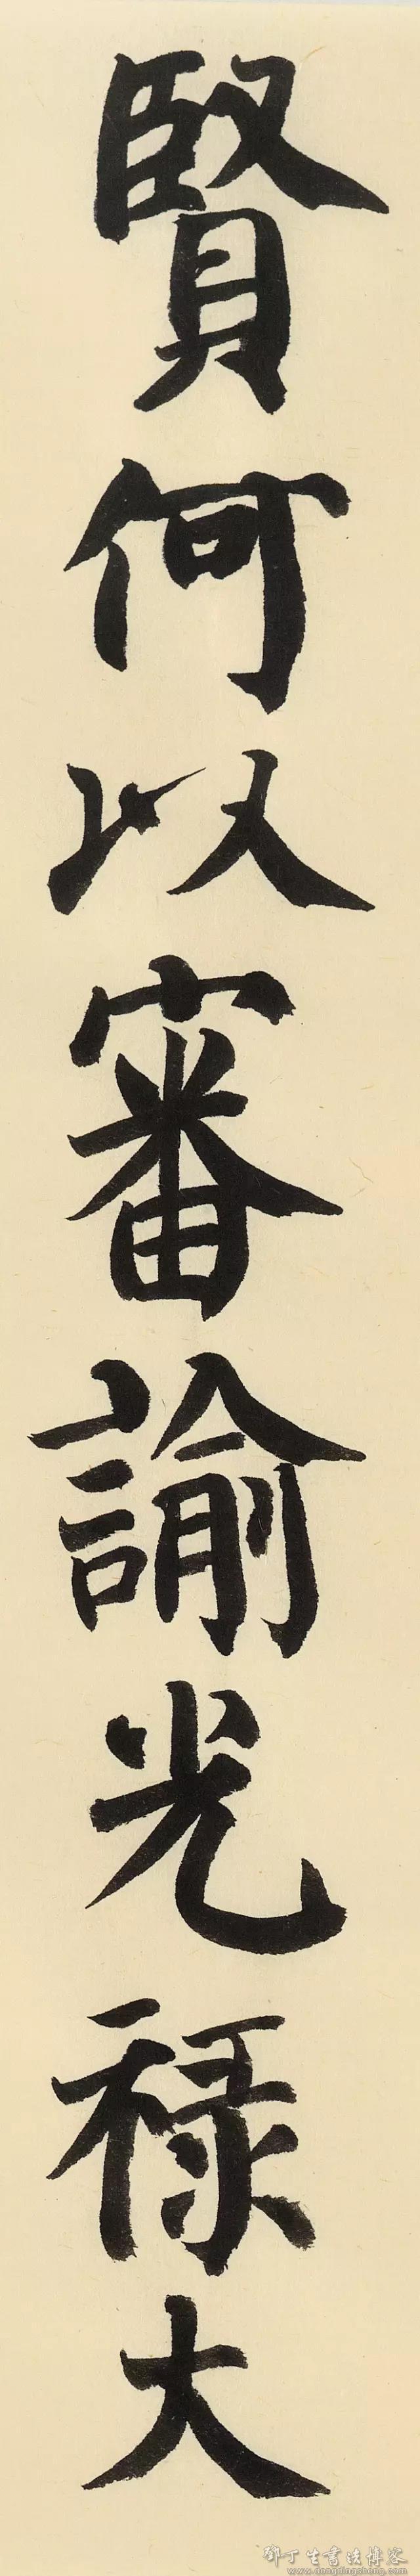 賢何以審諭光祿大
鄧丁生書法博客
www.dengdingsheng.com